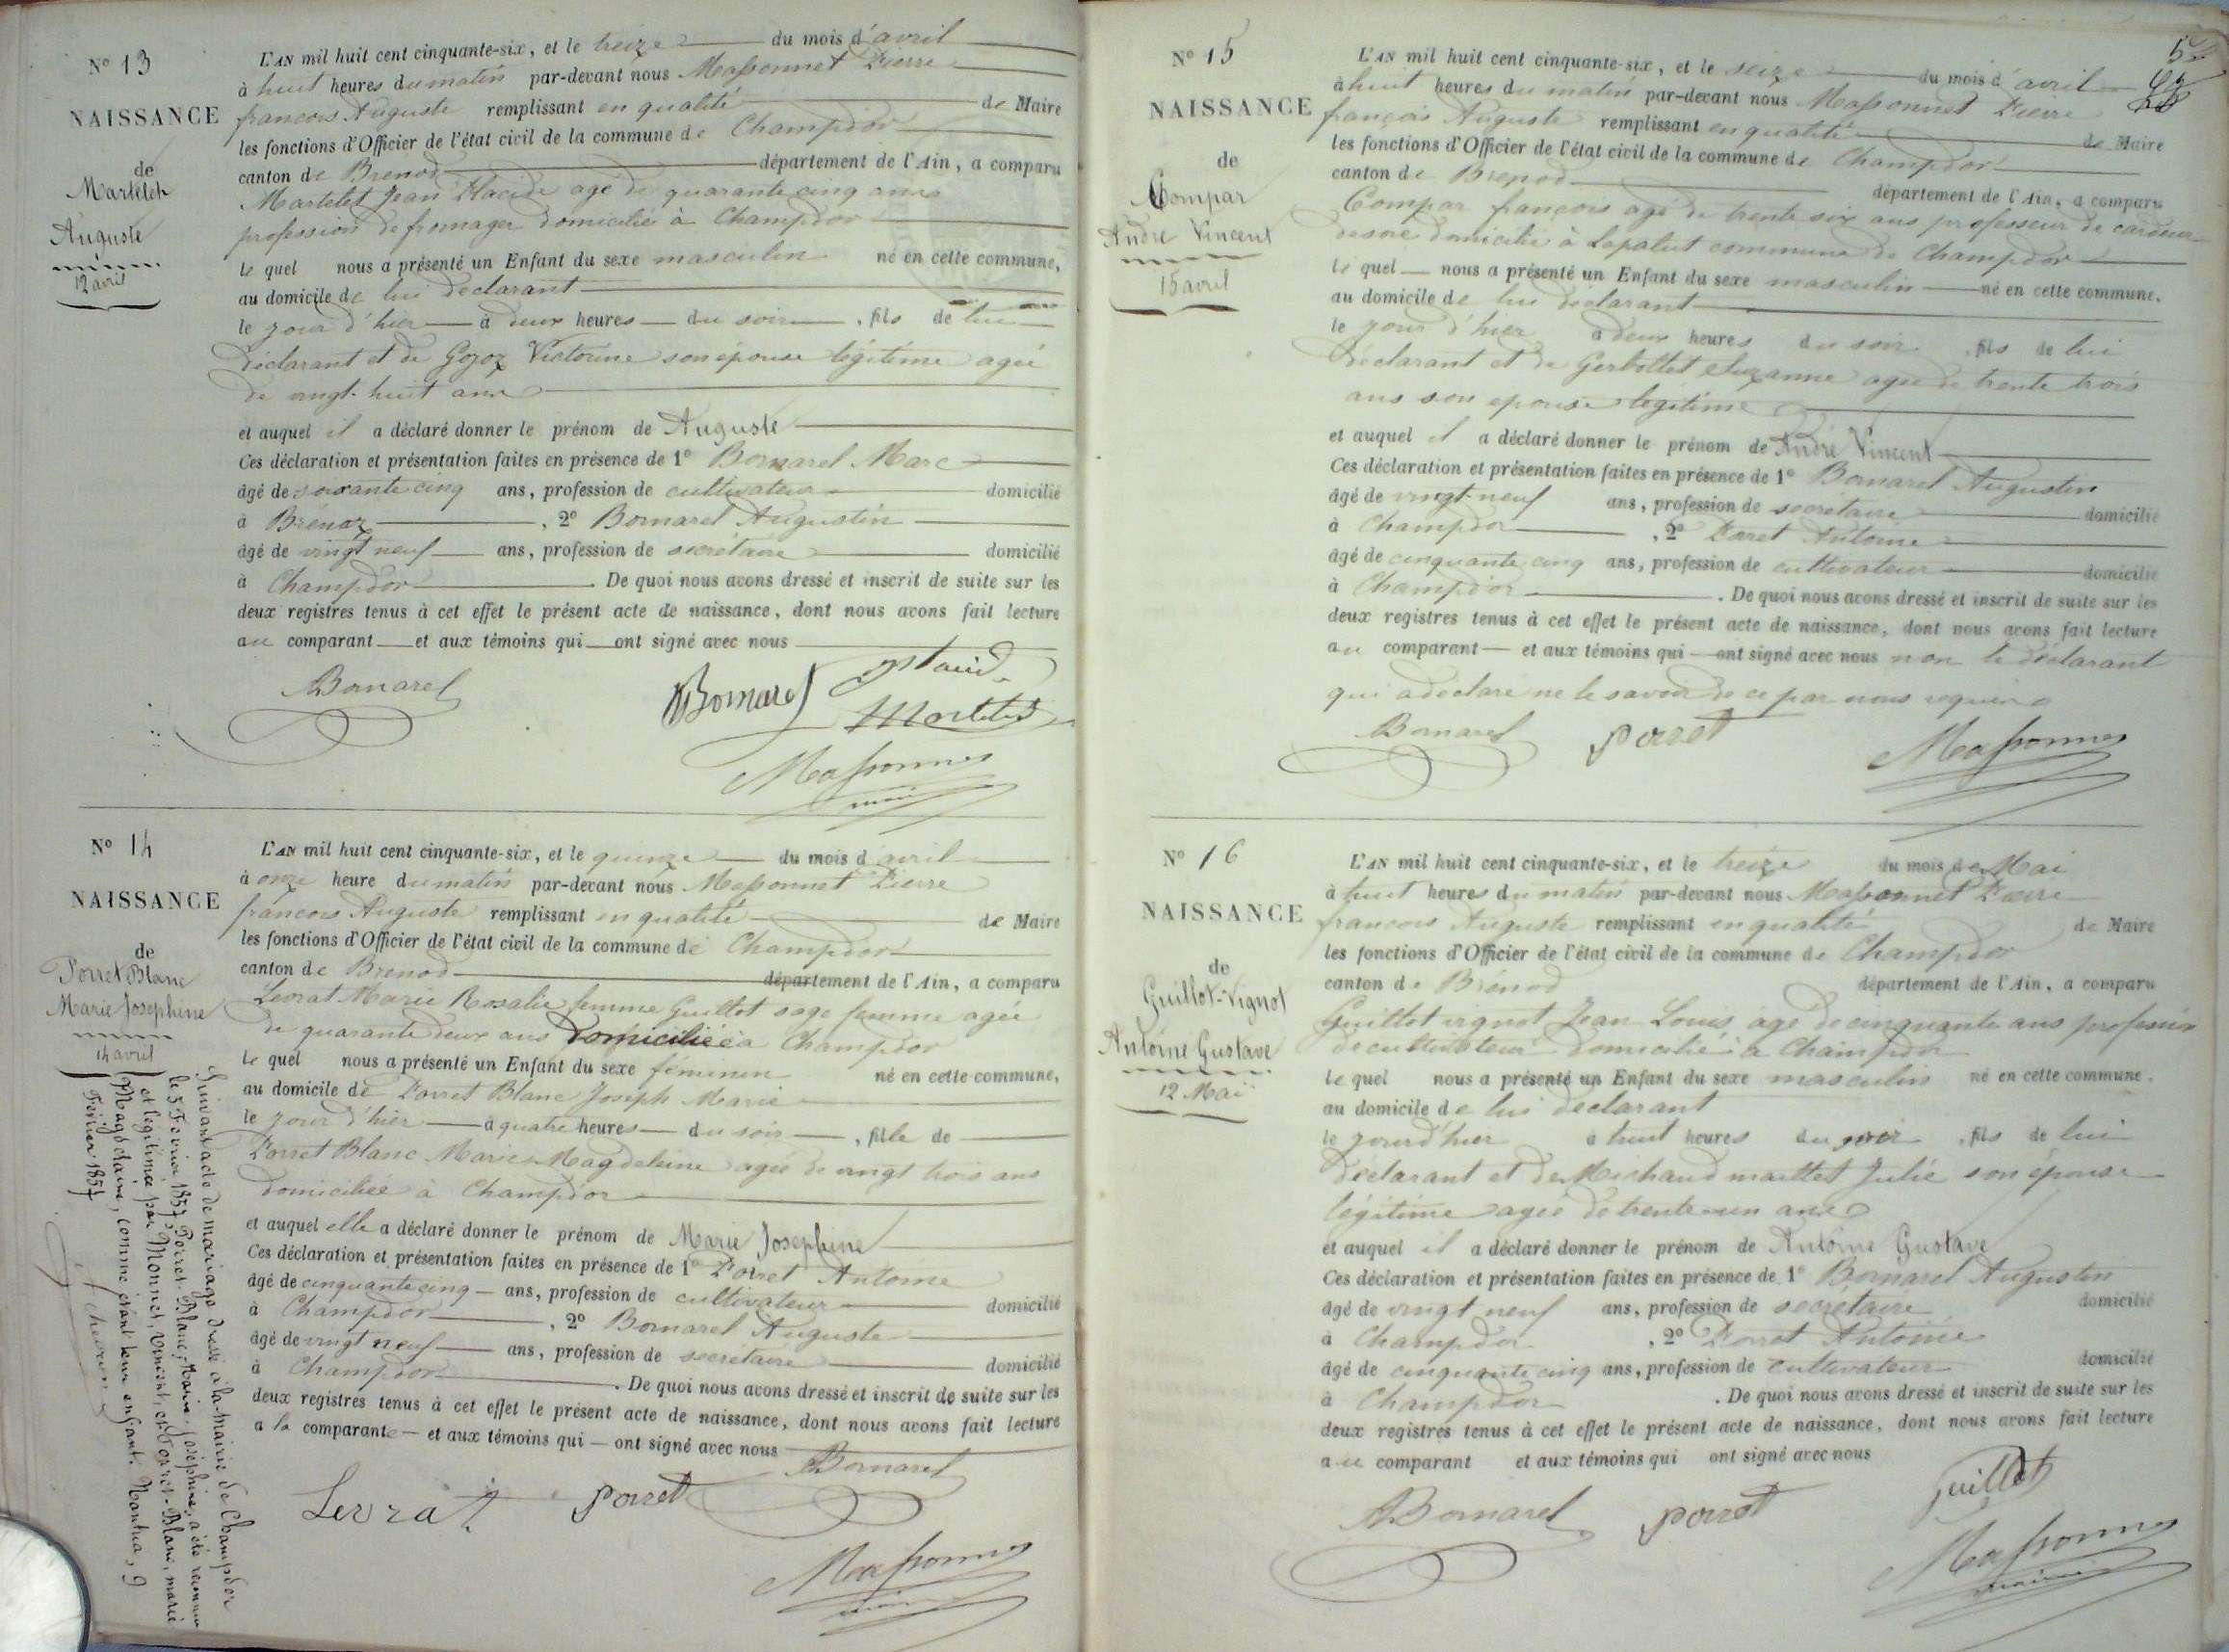 N° 13
NAISSANCE
de
Martelet
Auguste
12 avril
L'AN mil huit cent cinquante-six, et le treize du mois d'avril
à huit heures du matin par-devant nous Massonnet Pierre
francois Auguste remplissant en qualité de Maire
les fonctions d'Officier de l'état civil de la commune de Champdor
canton de Brenod département de l'Ain, a comparu
Martelet Jean Placide agé de quarante cinq ans
profession de fromager domicilié à Champdor
le quel nous a présenté un Enfant du sexe masculin né en cette commune,
au domicile de lui déclarant
le jour d'hier à deux heures du soir, fils de lui
déclarant et de Gojoz Victorine son épouse légitime agée
de vingt-huit ans
et auquel il a déclaré donner le prénom de Auguste
Ces déclaration et présentation faites en présence de 1° Bornarel Marc
âgé de soixante cinq ans, profession de cultivateur domicilié
à Brénaz, 2° Bornarel Augustin
âgé de vingt neuf ans, profession de secrétaire domicilié
à Champdor. De quoi nous avons dressé et inscrit de suite sur les
deux registres tenus à cet effet le présent acte de naissance, dont nous avons fait lecture
au comparant et aux témoins qui ont signé avec nous
Bornarel Bornarel
Martelet
Massonnet
maire
N° 14
NAISSANCE
de
Porret Blanc
Marie Josephine
14 avril
Suivant acte de mariage dressé à la mairie de Champdor
le 5 Fevrier 1857, Porret-Blanc, Marie-Joséphine, a été reconnue
et légitimée par Monnet, Vincent, et Porret-Blanc, Marie
Magdelaine, comme étant leur enfant. Nantua, 9
Février 1857
L'AN mil huit cent cinquante-six, et le quinze du mois d'avril
à onze heure du matin par-devant nous Massonnet Pierre
francois Auguste remplissant en qualité de Maire
les fonctions d'Officier de l'état civil de la commune de Champdor
canton de Brenod département de l'Ain, a comparu
Levrat Marie Rosalie femme Guillot sage femme agée
de quarante deux ans domiciliée à Champdor
le quel nous a présenté un Enfant du sexe féminin né en cette commune,
au domicile de Porret Blanc Joseph Marie
le jour d'hier à quatre heures du soir, fille de
Porret Blanc Marie Magdeleine agée de vingt trois ans
domiciliée à Champdor
et auquel elle a déclaré donner le prénom de Marie Josephine
Ces déclaration et présentation faites en présence de 1° Porret Antoine
âgé de cinquante cinq ans, profession de cultivateur domicilié
à Champdor, 2° Bornarel Auguste
âgé de vingt neuf ans, profession de secretaire domicilié
à Champdor. De quoi nous avons dressé et inscrit de suite sur les
deux registres tenus à cet effet le présent acte de naissance, dont nous avons fait lecture
a la comparante et aux témoins qui ont signé avec nous
Bornarel
Levrat Porret
Massonnet
maire
N° 15
NAISSANCE
de
Compar
André Vincent
15 avril
L'AN mil huit cent cinquante-six, et le seize du mois d'avril
à huit heures du matin par-devant nous Massonnet Pierre
françois Auguste remplissant en qualité de Maire
les fonctions d'Officier de l'état civil de la commune de Champdor
canton de Brenod département de l'Ain, a comparu
Compar françois agé de trente six ans professeur de cardeur
de soie domicilié à Lapalut commune de Champdor
le quel nous a présenté un Enfant du sexe masculin né en cette commune.
au domicile de lui déclarant
le jour d'hier à deux heures du soir, fils de lui
déclarant et de Gerbollet Suzanne agée de trente trois
ans son epouse légitime
et auquel il a déclaré donner le prénom de André Vincent
Ces déclaration et présentation faites en présence de 1° Bornarel Augustin
âgé de vingt-neuf ans, profession de secrétaire domicilié
à Champdor, 2° Porret Antoine
âgé de cinquante cinq ans, profession de cultivateur domicilié
à Champdor. De quoi nous avons dressé et inscrit de suite sur les
deux registres tenus à cet effet le présent acte de naissance, dont nous avons fait lecture
au comparant et aux témoins qui ont signé avec nous non le déclarant
qui a déclaré ne le savoir de ce par nous requis
Bornarel Porret
Massonnet
N° 16
NAISSANCE
de
Guillot-Vignot
Antoine Gustave
12 Mai
L'AN mil huit cent cinquante-six, et le treize du mois de Mai
à huit heures du matin par-devant nous Massonnet Pierre
francois Auguste remplissant en qualité de Maire
les fonctions d'Officier de l'état civil de la commune de Champdor
canton de Brénod département de l'Ain, a comparu
Guillot vignot Jean Louis agé de cinquante ans profession
de cultivateur domicilié à Champdor
le quel nous a présenté un Enfant du sexe masculin né en cette commune.
au domicile de lui declarant
le jourd'hier à huit heures du soir, fils de lui
déclarant et de Michaud maillet Julie son épouse
légitime agée de trente-un ans
et auquel il a déclaré donner le prénom de Antoine Gustave
Ces déclaration et présentation faites en présence de 1° Bornarel Augustin
âgé de vingt neuf ans, profession de secrétaire domicilié
à Champdor, 2° Porret Antoine
âgé de cinquante cinq ans, profession de cultivateur domicilié
à Champdor. De quoi nous avons dressé et inscrit de suite sur les
deux registres tenus à cet effet le présent acte de naissance, dont nous avons fait lecture
au comparant et aux témoins qui ont signé avec nous
Bornarel Porret Guillot
Massonnet
maire